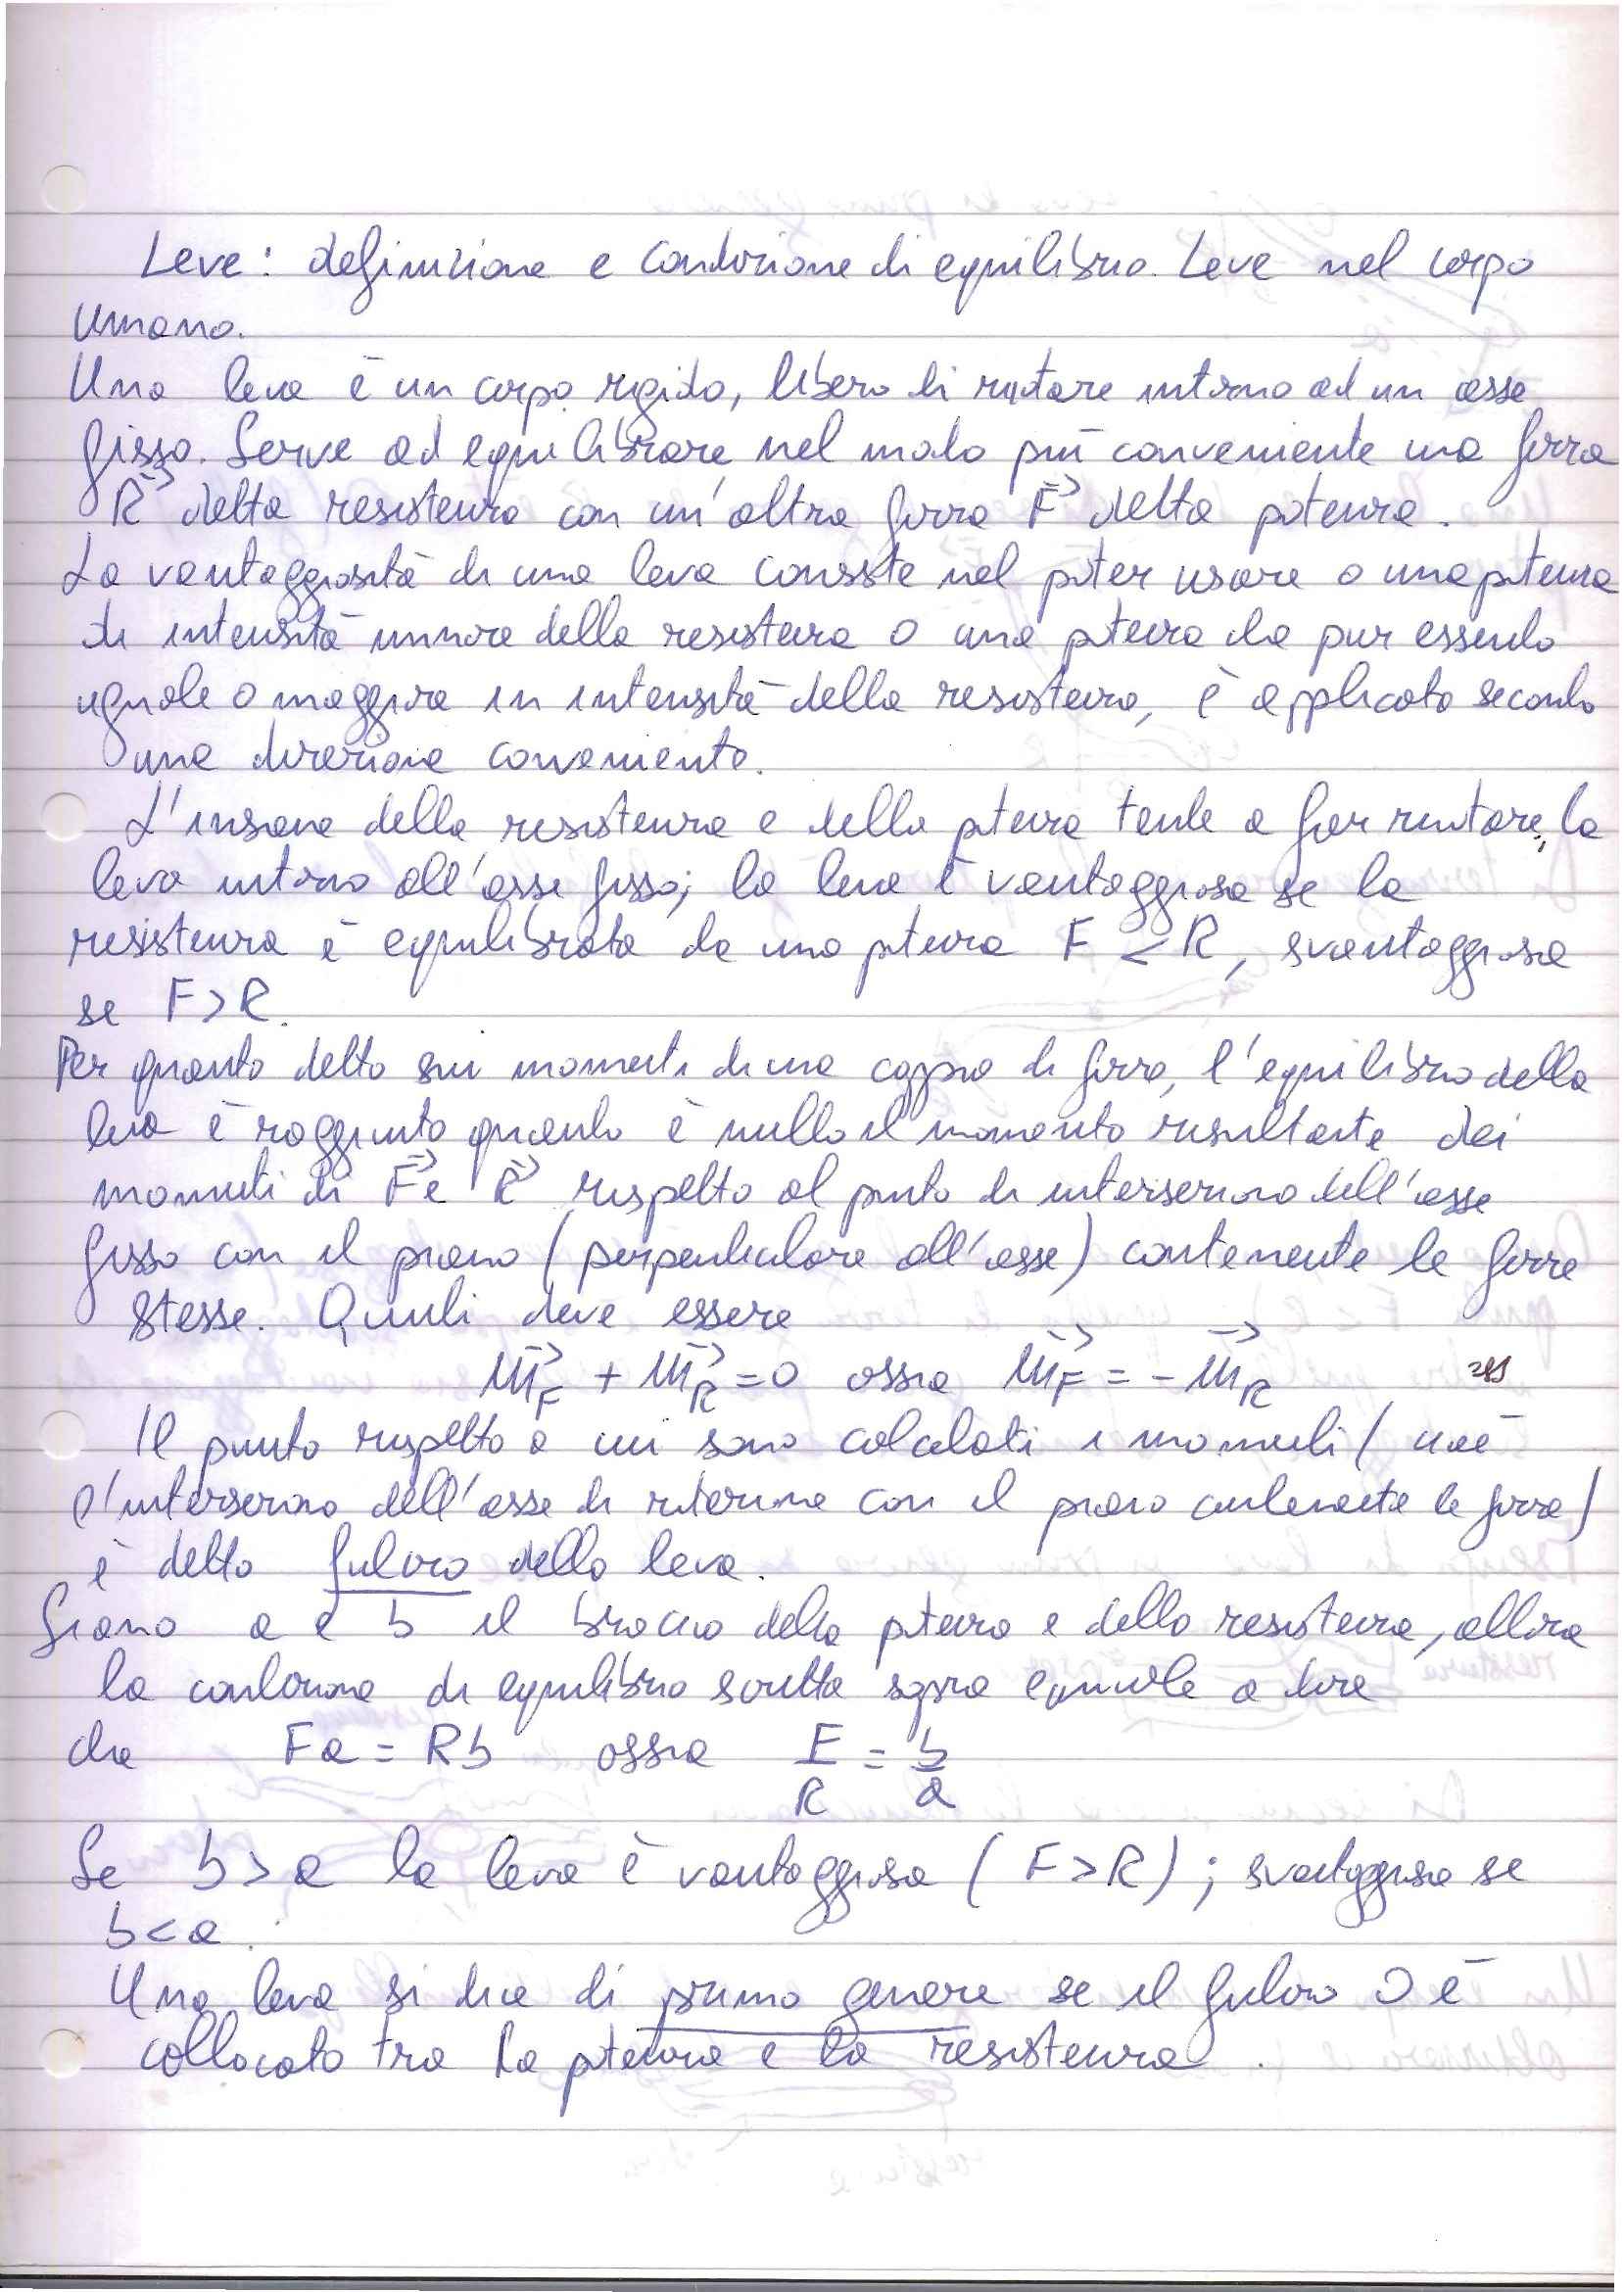 Leve: definizione e condizione di equilibrio. Leve nel corpo
umano.
Una leva è un corpo rigido, libero di ruotare intorno ad un asse
fisso. Serve ad equilibrare nel modo più conveniente una forza
R detta resistenza con un'altra forza F detta potenza.
La vantaggiosità di una leva consiste nel poter usare o una potenza
di intensità minore della resistenza o una potenza che pur essendo
uguale o maggiore in intensità della resistenza, è applicata secondo
una direzione conveniente.
L'insieme della resistenza e della potenza tende a far ruotare la
leva intorno all'asse fisso; la leva è vantaggiosa se la
resistenza è equilibrata da una potenza F < R, svantaggiosa
se F > R.
Per quanto detto sui momenti di una coppia di forze, l'equilibrio della
leva è raggiunto quando è nullo il momento risultante dei
momenti di F e R rispetto al punto di intersezione dell'asse
fisso con il piano (perpendicolare all'asse) contenente le forze
stesse. Quindi deve essere
M_F + M_R = 0 ossia M_F = - M_R
Il punto rispetto a cui sono calcolati i momenti (cioè
l'intersezione dell'asse di rotazione con il piano contenente le forze)
è detto fulcro della leva.
Siano a e b il braccio della potenza e della resistenza, allora
la condizione di equilibrio scritta sopra equivale a dire
che Fa = Rb ossia F/R = b/a
Se b > a la leva è vantaggiosa (F > R); svantaggiosa se
b < a.
Una leva si dice di primo genere se il fulcro O è
collocato tra la potenza e la resistenza.